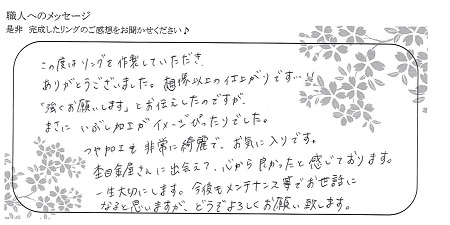 職人へのメッセージ
是非 完成したリングのご感想をお聞かせください♪
この度はリングを作製していただき、
ありがとうございました。想像以上の仕上がりです…!!
「強くお願いします」とお伝えしたのですが、
まさに いぶし加工がイメージぴったりでした。
つや加工も非常に綺麗で、お気に入りです。
杢目金屋さんに出会えて、心から良かったと感じております。
一生大切にします。今後もメンテナンス等でお世話に
なると思いますが、どうぞよろしくお願い致します。